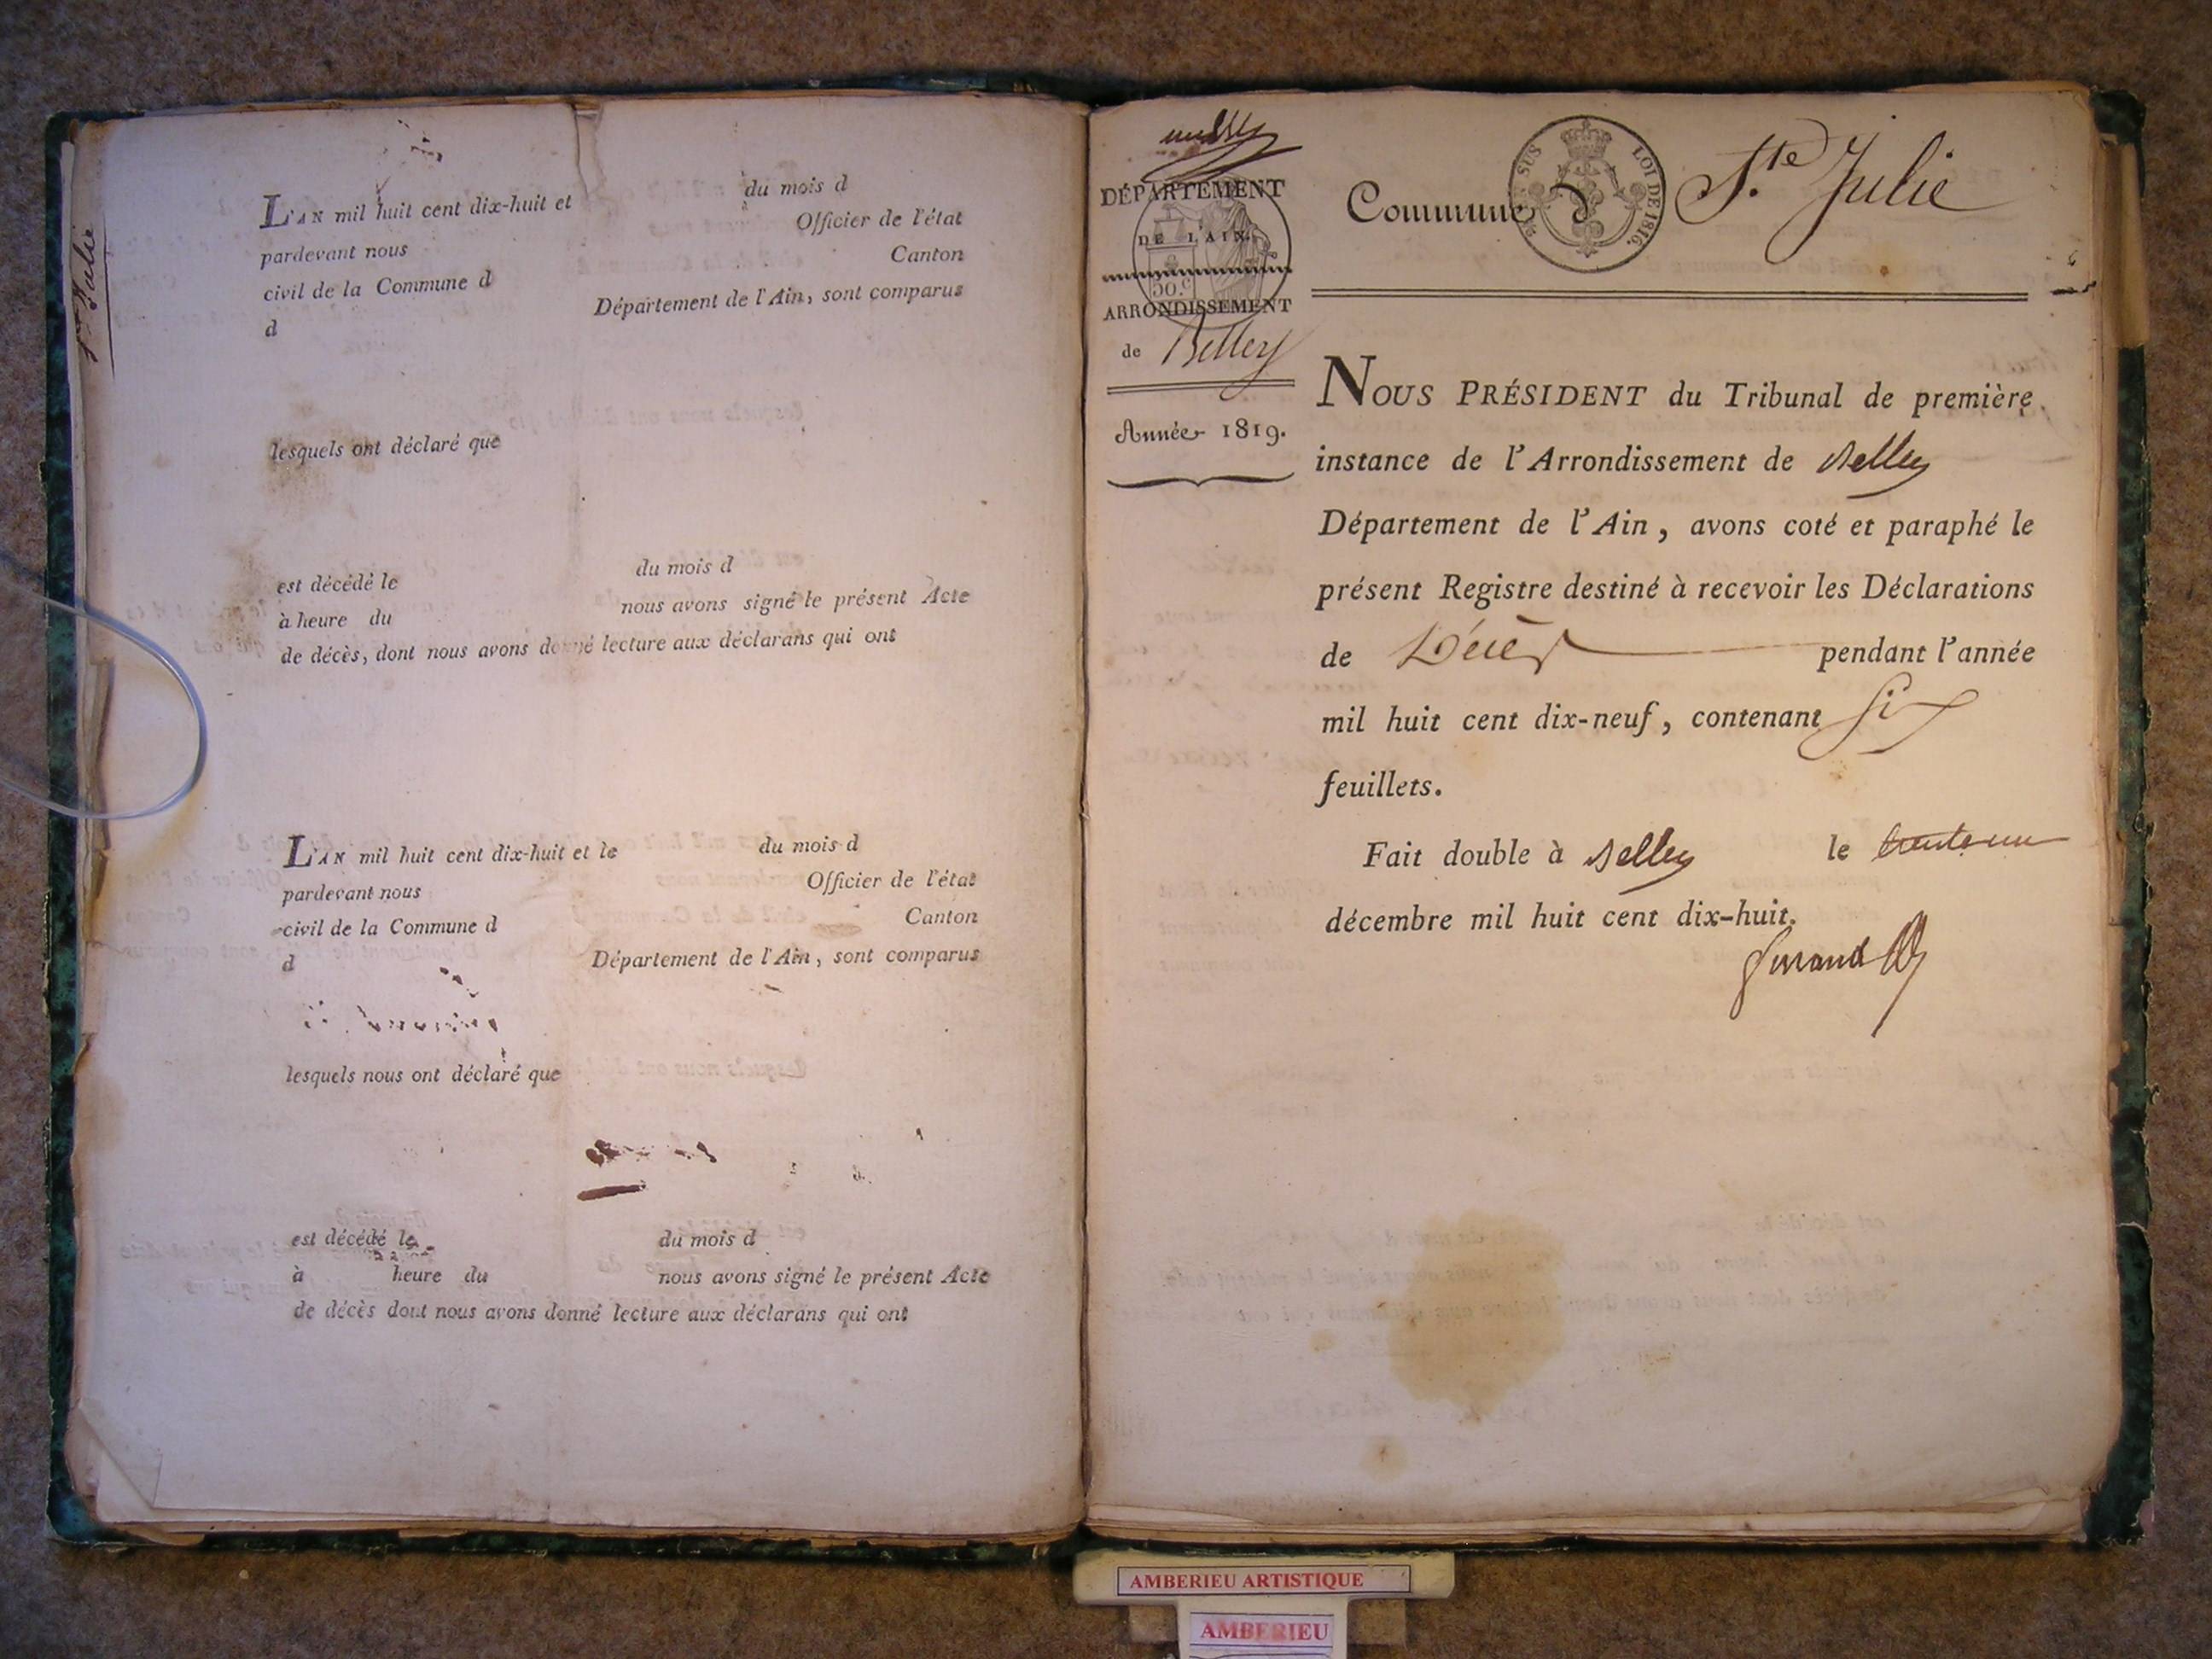 Ste Julie
L'AN mil huit cent dix-huit et du mois d
pardevant nous Officier de l'état
civil de la Commune d Canton
d Département de l'Ain, sont comparus
lesquels ont déclaré que
est décédé le du mois d
à heure du nous avons signé le présent Acte
de décès, dont nous avons donné lecture aux déclarans qui ont
L'AN mil huit cent dix-huit et le du mois d
pardevant nous Officier de l'état
civil de la Commune d Canton
d Département de l'Ain, sont comparus
lesquels nous ont déclaré que
est décédé le du mois d
à heure du nous avons signé le présent Acte
de décès dont nous avons donné lecture aux déclarans qui ont
DÉPARTEMENT
DE L'AIN.
50.c
ARRONDISSEMENT
de Belley
Année 1819.
Commune d Ste Julie
SUS LOI DE 1816.
NOUS PRÉSIDENT du Tribunal de première
instance de l'Arrondissement de Belley
Département de l'Ain, avons coté et paraphé le
présent Registre destiné à recevoir les Déclarations
de Décès pendant l'année
mil huit cent dix-neuf, contenant six
feuillets.
Fait double à Belley le trente un
décembre mil huit cent dix-huit.
AMBERIEU ARTISTIQUE
AMBERIEU